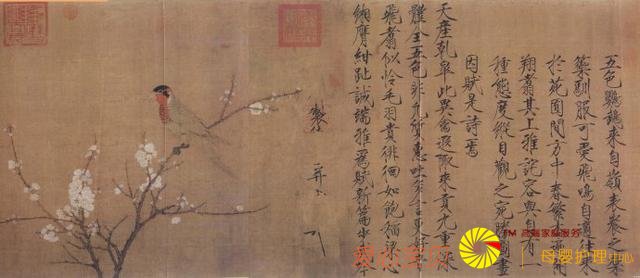 五色鸚鵡來自嶺表養之禁
籞馴服可愛飛鳴自適往來
於苑囿間方中春繁杏遍
翔翥其上雅詫容與自有
種態度縱目觀之宛勝圖畫
因賦是詩焉
天產乾皋此異禽遐陬來貢九重深
體全五色非凡質惠吐多言更好
飛翥似憐毛羽貴徘徊如飽稻粱心
緗膺紺趾誠端雅為賦新篇步
製
并
TM 高端家庭服务
母婴护理中心